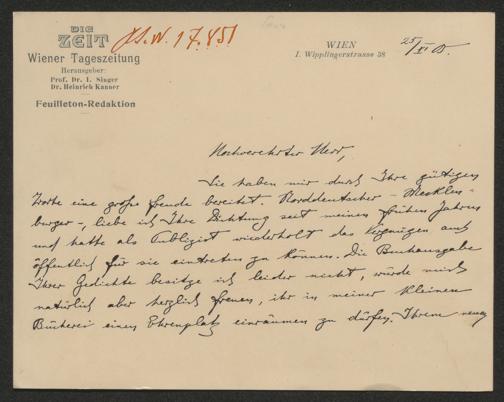 DIE
ZEIT
Wiener Tageszeitung
Herausgeber:
Prof. Dr. I. Singer
Dr. Heinrich Kanner
Feuilleton-Redaktion
WIEN
I. Wipplingerstrasse 38
25/XI 05.
Hochverehrter Herr,
Sie haben mir durch Ihre gütigen
Worte eine große Freude bereitet. Norddeutscher – Mecklen-
burger –, liebe ich Ihre Dichtung seit meinen frühen Jahren
und hatte als Publizist wiederholt das Vergnügen auch
öffentlich für sie eintreten zu können. Die Buchausgabe
Ihrer Gedichte besitze ich leider nicht, würde mich
natürlich aber herzlich freuen, ihr in meiner kleinen
Bücherei einen Ehrenplatz einräumen zu dürfen. Ihrem